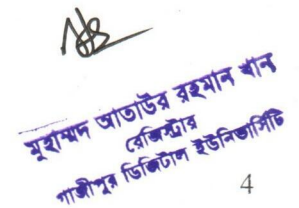 মুহাম্মদ আতাউর রহমান খান
রেজিস্ট্রার
গাজীপুর ডিজিটাল ইউনিভার্সিটি
4